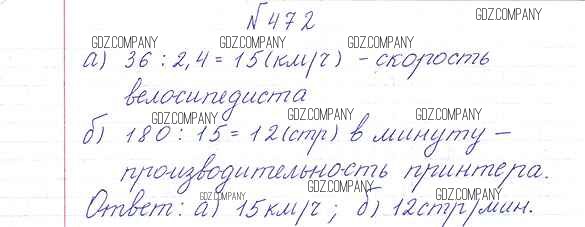 №472
GDZ.COMPANY
GDZ.COMPANY GDZ.COMPANY GDZ.COMPANY GDZ.COMPANY
а) 36 : 2,4 = 15 (км/ч) - скорость
велосипедиста
GDZ.COMPANY GDZ.COMPANY GDZ.COMPANY
б) 180 : 15 = 12 (стр) в минуту –
производительность принтера.
GDZ.COMPANY GDZ.COMPANY GDZ.COMPANY
Ответ: а) 15 км/ч ; б) 12 стр/мин.
GDZ.COMPANY